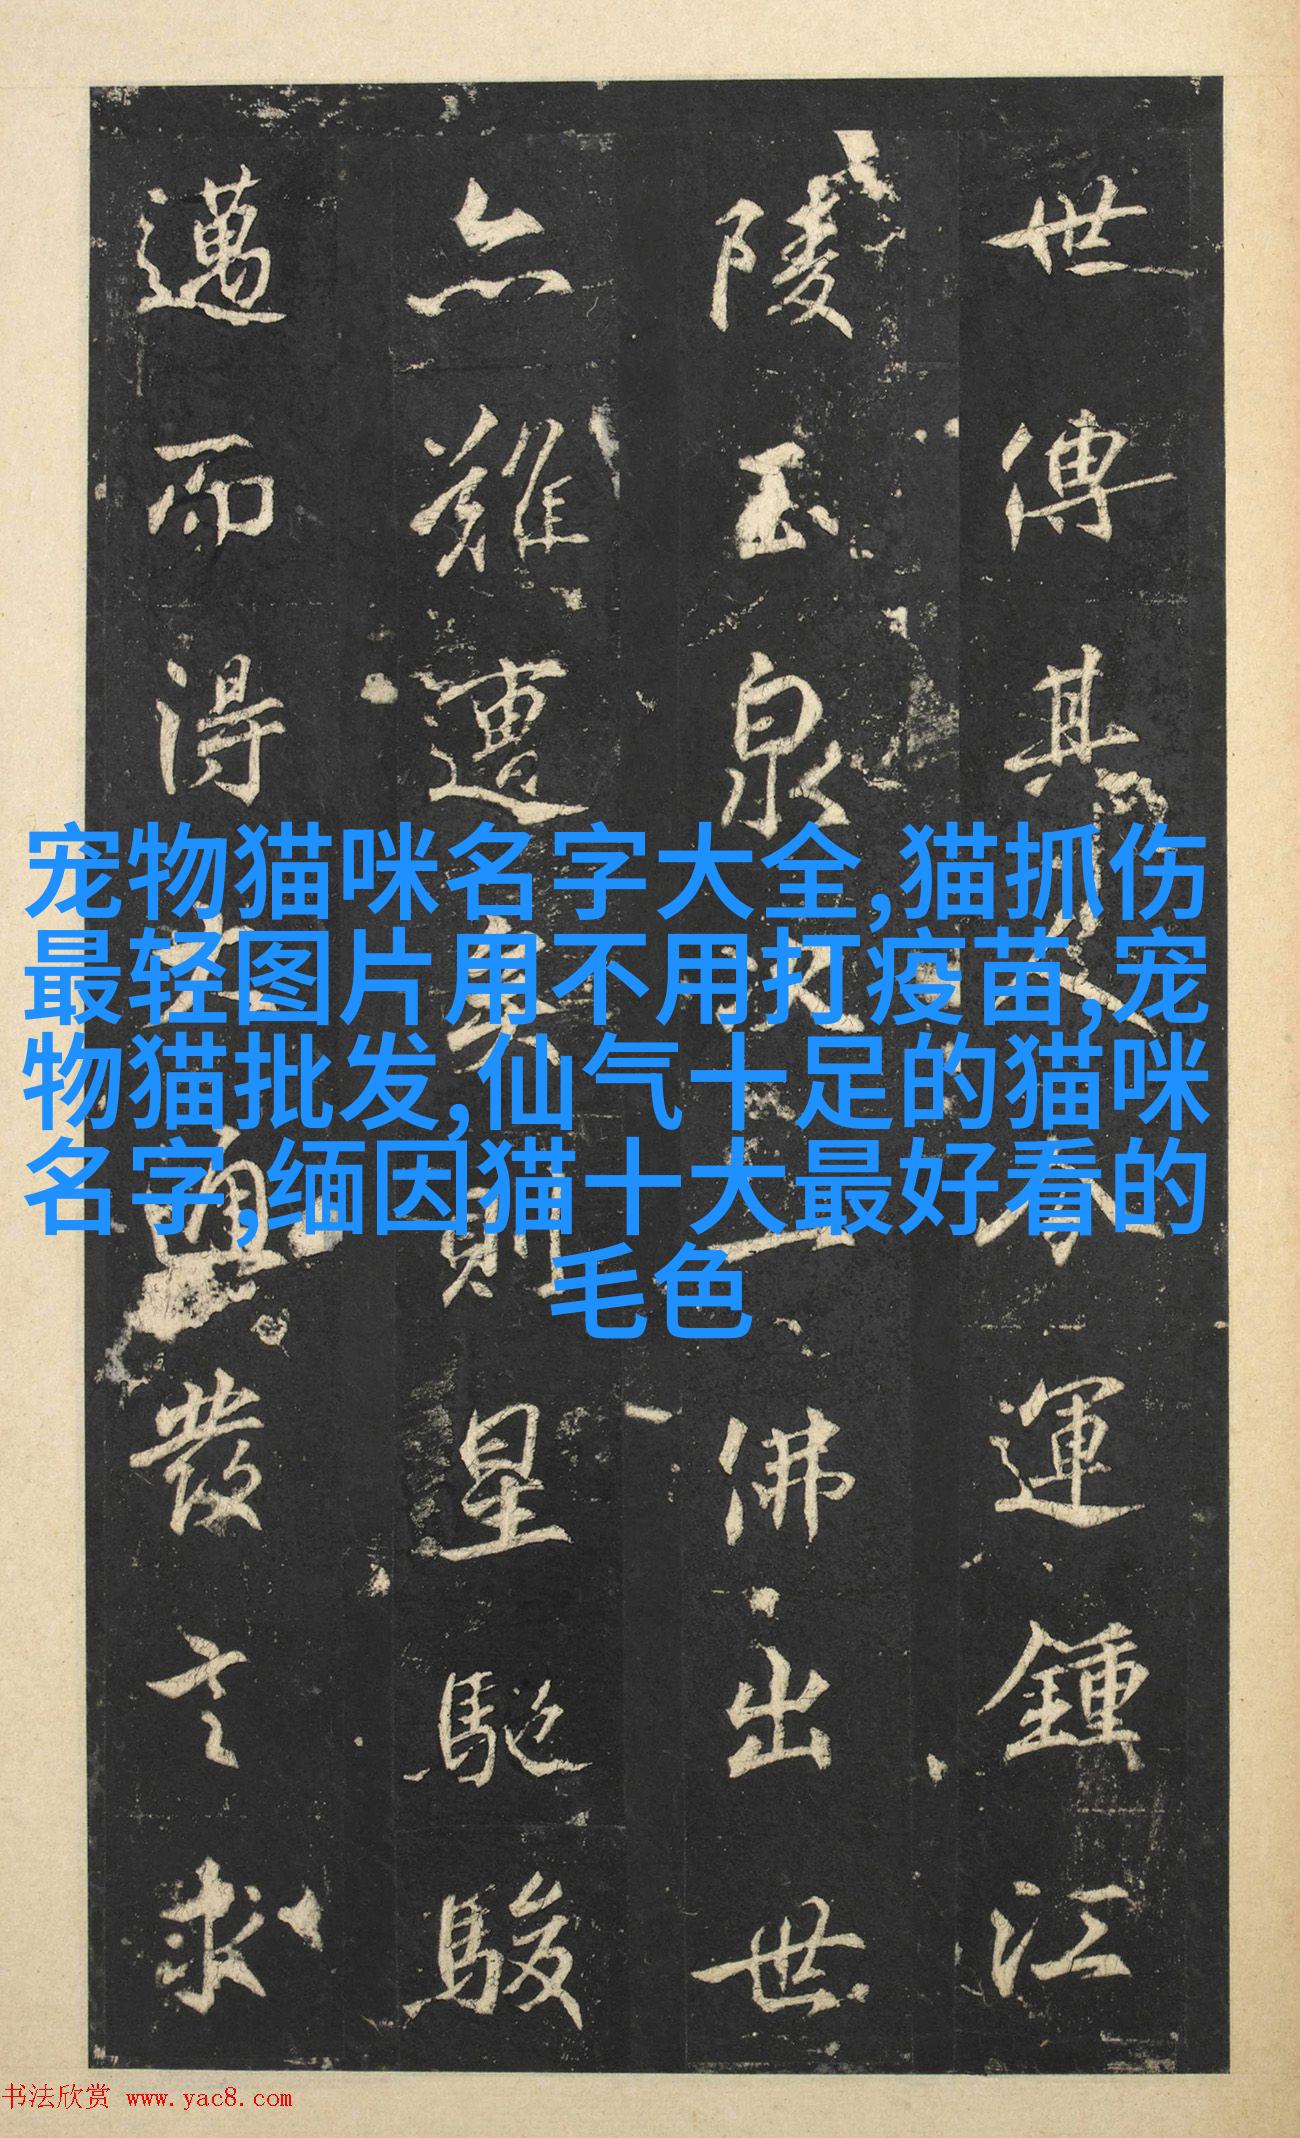 世傳其
運鍾江
陵玉泉
一佛出世
亦難遭
矣則星馳駿
邁而得
興發言求
宠物猫咪名字大全,猫抓伤
最轻图片用不用打疫苗,宠
物猫批发,仙气十足的猫咪
名字,缅因猫十大最好看的
毛色
书法欣赏 www.yac8.com